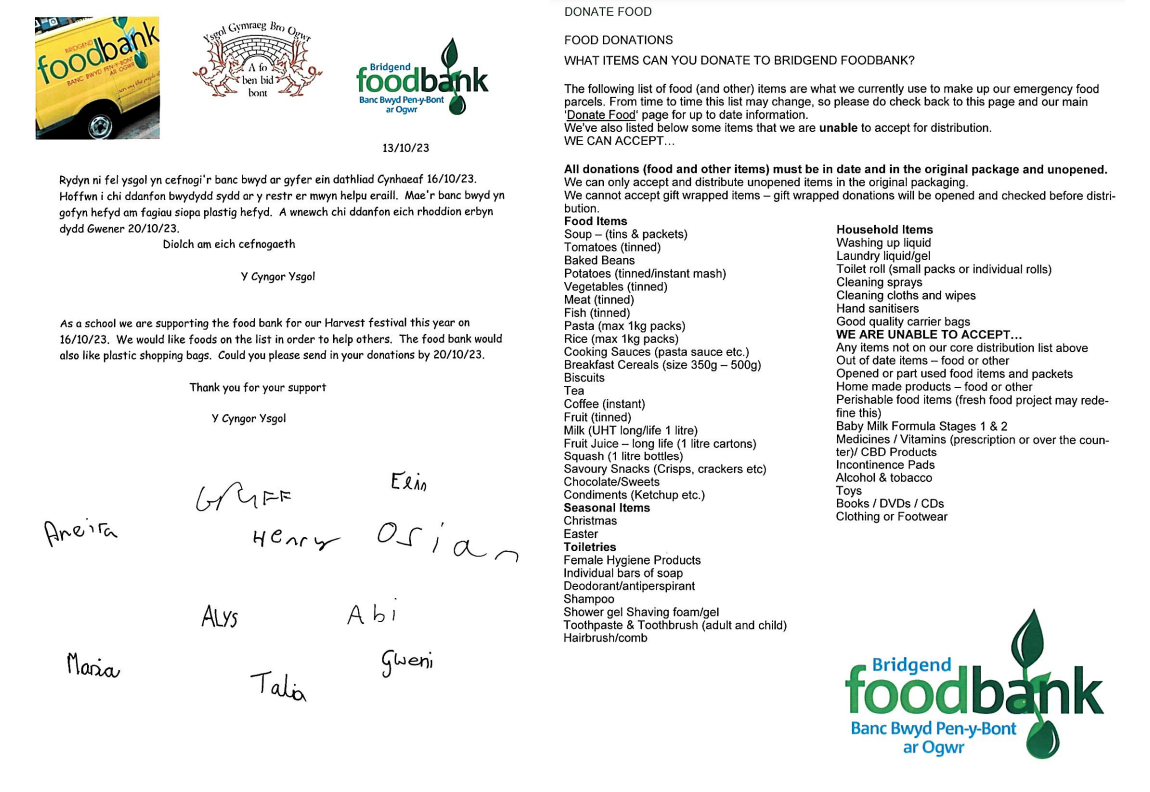 BRIDGEND
foodbank
BANC BWYD PEN-Y-BONT
AR OGWR
Ysgol Gymraeg Bro Ogwr
A fo
ben bid
bont
Bridgend
foodbank
Banc Bwyd Pen-y-Bont
ar Ogwr
13/10/23
Rydyn ni fel ysgol yn cefnogi'r banc bwyd ar gyfer ein dathliad Cynhaeaf 16/10/23.
Hoffwn i chi ddanfon bwydydd sydd ar y restr er mwyn helpu eraill. Mae'r banc bwyd yn
gofyn hefyd am fagiau siopa plastig hefyd. A wnewch chi ddanfon eich rhoddion erbyn
dydd Gwener 20/10/23.
Diolch am eich cefnogaeth
Y Cyngor Ysgol
As a school we are supporting the food bank for our Harvest festival this year on
16/10/23. We would like foods on the list in order to help others. The food bank would
also like plastic shopping bags. Could you please send in your donations by 20/10/23.
Thank you for your support
Y Cyngor Ysgol
Gruff
Elin
Aneira
Henry
Osian
ALYS
Abi
Maria
Talia
Gweni
DONATE FOOD
FOOD DONATIONS
WHAT ITEMS CAN YOU DONATE TO BRIDGEND FOODBANK?
The following list of food (and other) items are what we currently use to make up our emergency food
parcels. From time to time this list may change, so please do check back to this page and our main
'Donate Food' page for up to date information.
We've also listed below some items that we are unable to accept for distribution.
WE CAN ACCEPT…
All donations (food and other items) must be in date and in the original package and unopened.
We can only accept and distribute unopened items in the original packaging.
We cannot accept gift wrapped items – gift wrapped donations will be opened and checked before distri-
bution.
Food Items
Soup – (tins & packets)
Tomatoes (tinned)
Baked Beans
Potatoes (tinned/instant mash)
Vegetables (tinned)
Meat (tinned)
Fish (tinned)
Pasta (max 1kg packs)
Rice (max 1kg packs)
Cooking Sauces (pasta sauce etc.)
Breakfast Cereals (size 350g – 500g)
Biscuits
Tea
Coffee (instant)
Fruit (tinned)
Milk (UHT long/life 1 litre)
Fruit Juice – long life (1 litre cartons)
Squash (1 litre bottles)
Savoury Snacks (Crisps, crackers etc)
Chocolate/Sweets
Condiments (Ketchup etc.)
Seasonal Items
Christmas
Easter
Toiletries
Female Hygiene Products
Individual bars of soap
Deodorant/antiperspirant
Shampoo
Shower gel Shaving foam/gel
Toothpaste & Toothbrush (adult and child)
Hairbrush/comb
Household Items
Washing up liquid
Laundry liquid/gel
Toilet roll (small packs or individual rolls)
Cleaning sprays
Cleaning cloths and wipes
Hand sanitisers
Good quality carrier bags
WE ARE UNABLE TO ACCEPT…
Any items not on our core distribution list above
Out of date items – food or other
Opened or part used food items and packets
Home made products – food or other
Perishable food items (fresh food project may rede-
fine this)
Baby Milk Formula Stages 1 & 2
Medicines / Vitamins (prescription or over the coun-
ter)/ CBD Products
Incontinence Pads
Alcohol & tobacco
Toys
Books / DVDs / CDs
Clothing or Footwear
Bridgend
foodbank
Banc Bwyd Pen-y-Bont
ar Ogwr